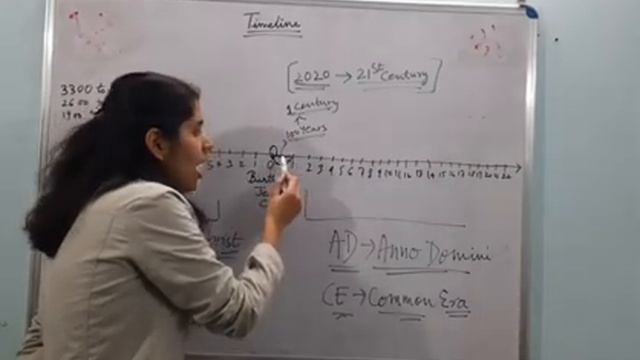 Timeline
2020 → 21st Century
3300 to
2600
1900
1 Century
100 Years
5 4 3 2 1 0 1 2 3 4 5 6 7 8 9 10 11 12 13 14 15 16 17 18 19 20
AD → Anno Domini
CE → Common Era